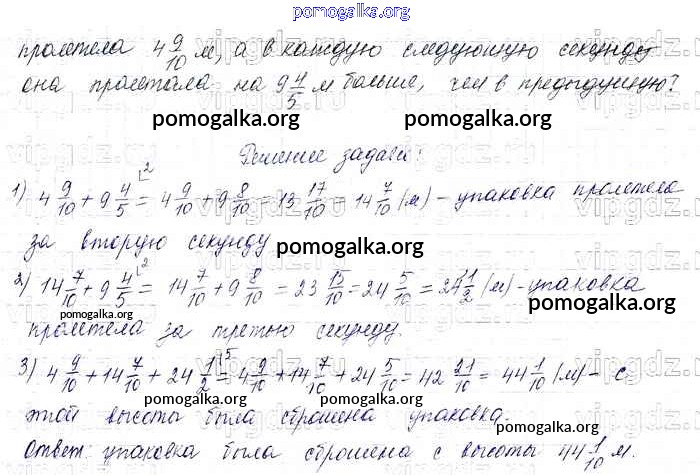 pomogalka.org
пролетела 4 9/10 м, а в каждую следующую секунду
она пролетала на 9 4/5 м больше, чем в предыдущую?
pomogalka.org pomogalka.org
Решение задачи:
1) 4 9/10 + 9 4/5 ⌊2 = 4 9/10 + 9 8/10 = 13 17/10 = 14 7/10 (м) – упаковка пролетела
за вторую секунду
pomogalka.org
2) 14 7/10 + 9 4/5 ⌊2 = 14 7/10 + 9 8/10 = 23 15/10 = 24 5/10 = 24 1/2 (м) – упаковка
пролетела за третью секунду.
pomogalka.org pomogalka.org
3) 4 9/10 + 14 7/10 + 24 1/2 ⌊5 = 4 9/10 + 14 7/10 + 24 5/10 = 42 21/10 = 44 1/10 (м) – с
этой высоты была сброшена упаковка.
pomogalka.org pomogalka.org
Ответ: упаковка была сброшена с высоты 44 1/10 м.